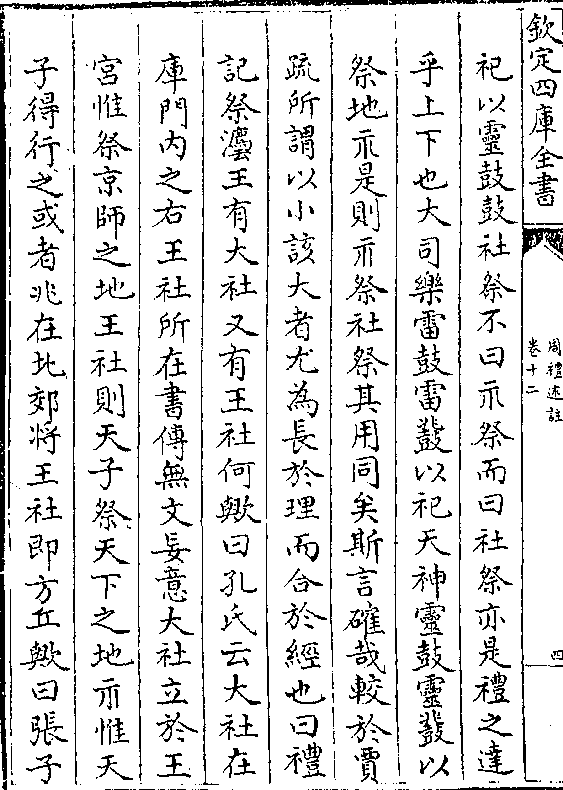 欽定四庫全書
周禮述註
卷十二
四
祀以靈鼓鼓社祭不曰示祭而曰社祭亦是禮之達
乎上下也大司樂雷鼓雷鼗以祀天神靈鼓靈鼗以
祭地示是則示祭社祭其用同矣斯言確哉較於賈
疏所謂以小該大者尤為長於理而合於經也曰禮
記祭灋王有大社又有王社何歟曰孔氏云大社在
庫門內之右王社所在書傳無文妄意大社立於王
宮惟祭京師之地王社則天子祭天下之地示惟天
子得行之或者兆在北郊將王社即方丘歟曰張子